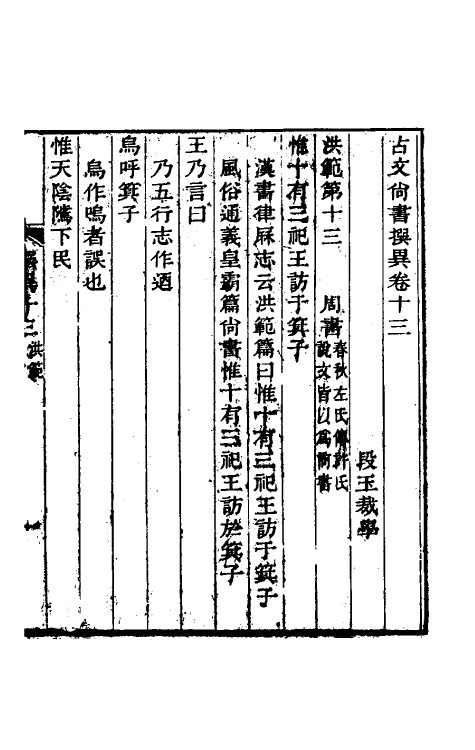 古文尚書撰異卷十三
段玉裁學
洪範第十三 周書春秋左氏傳許氏說文皆以爲商書
惟十有三祀王訪于箕子
漢書律厤志云洪範篇曰惟十有三祀王訪于箕子
風俗通義皇霸篇尙書惟十有三祀王訪於箕子
王乃言曰
乃五行志作迺
烏呼箕子
烏作嗚者誤也
惟天陰騭下民
洪範